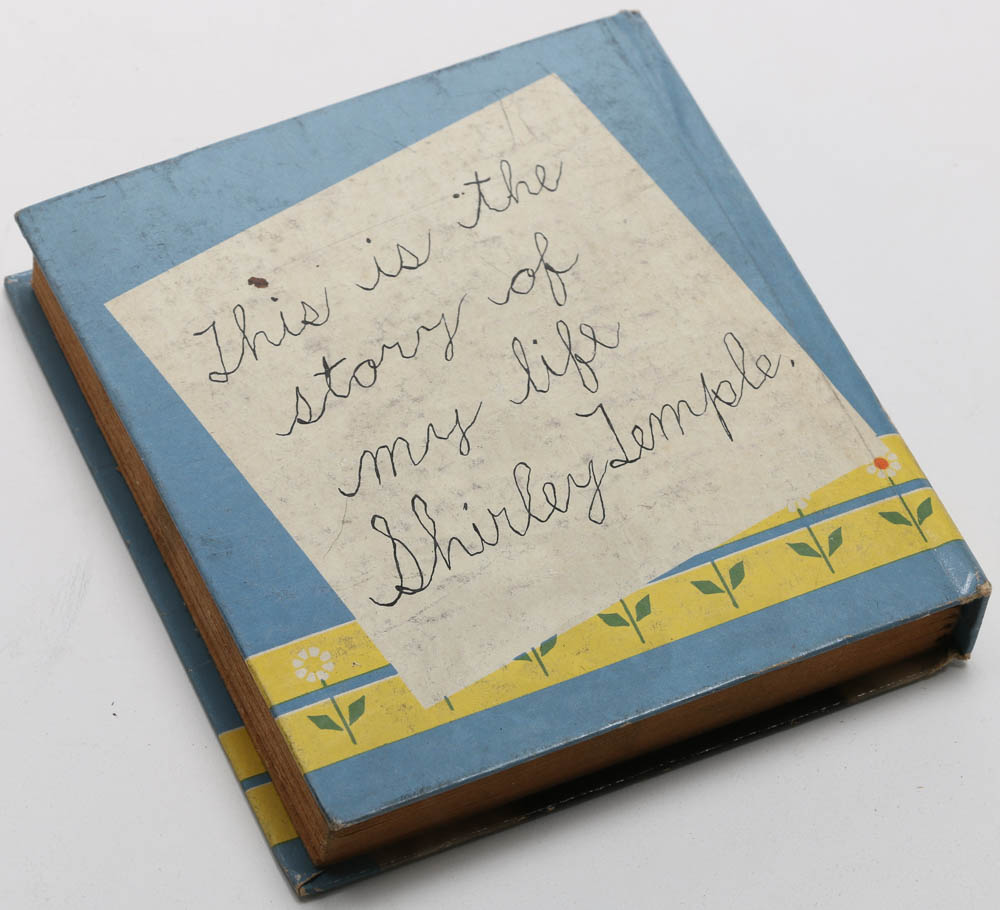 This is the
story of
my life
Shirley Temple.